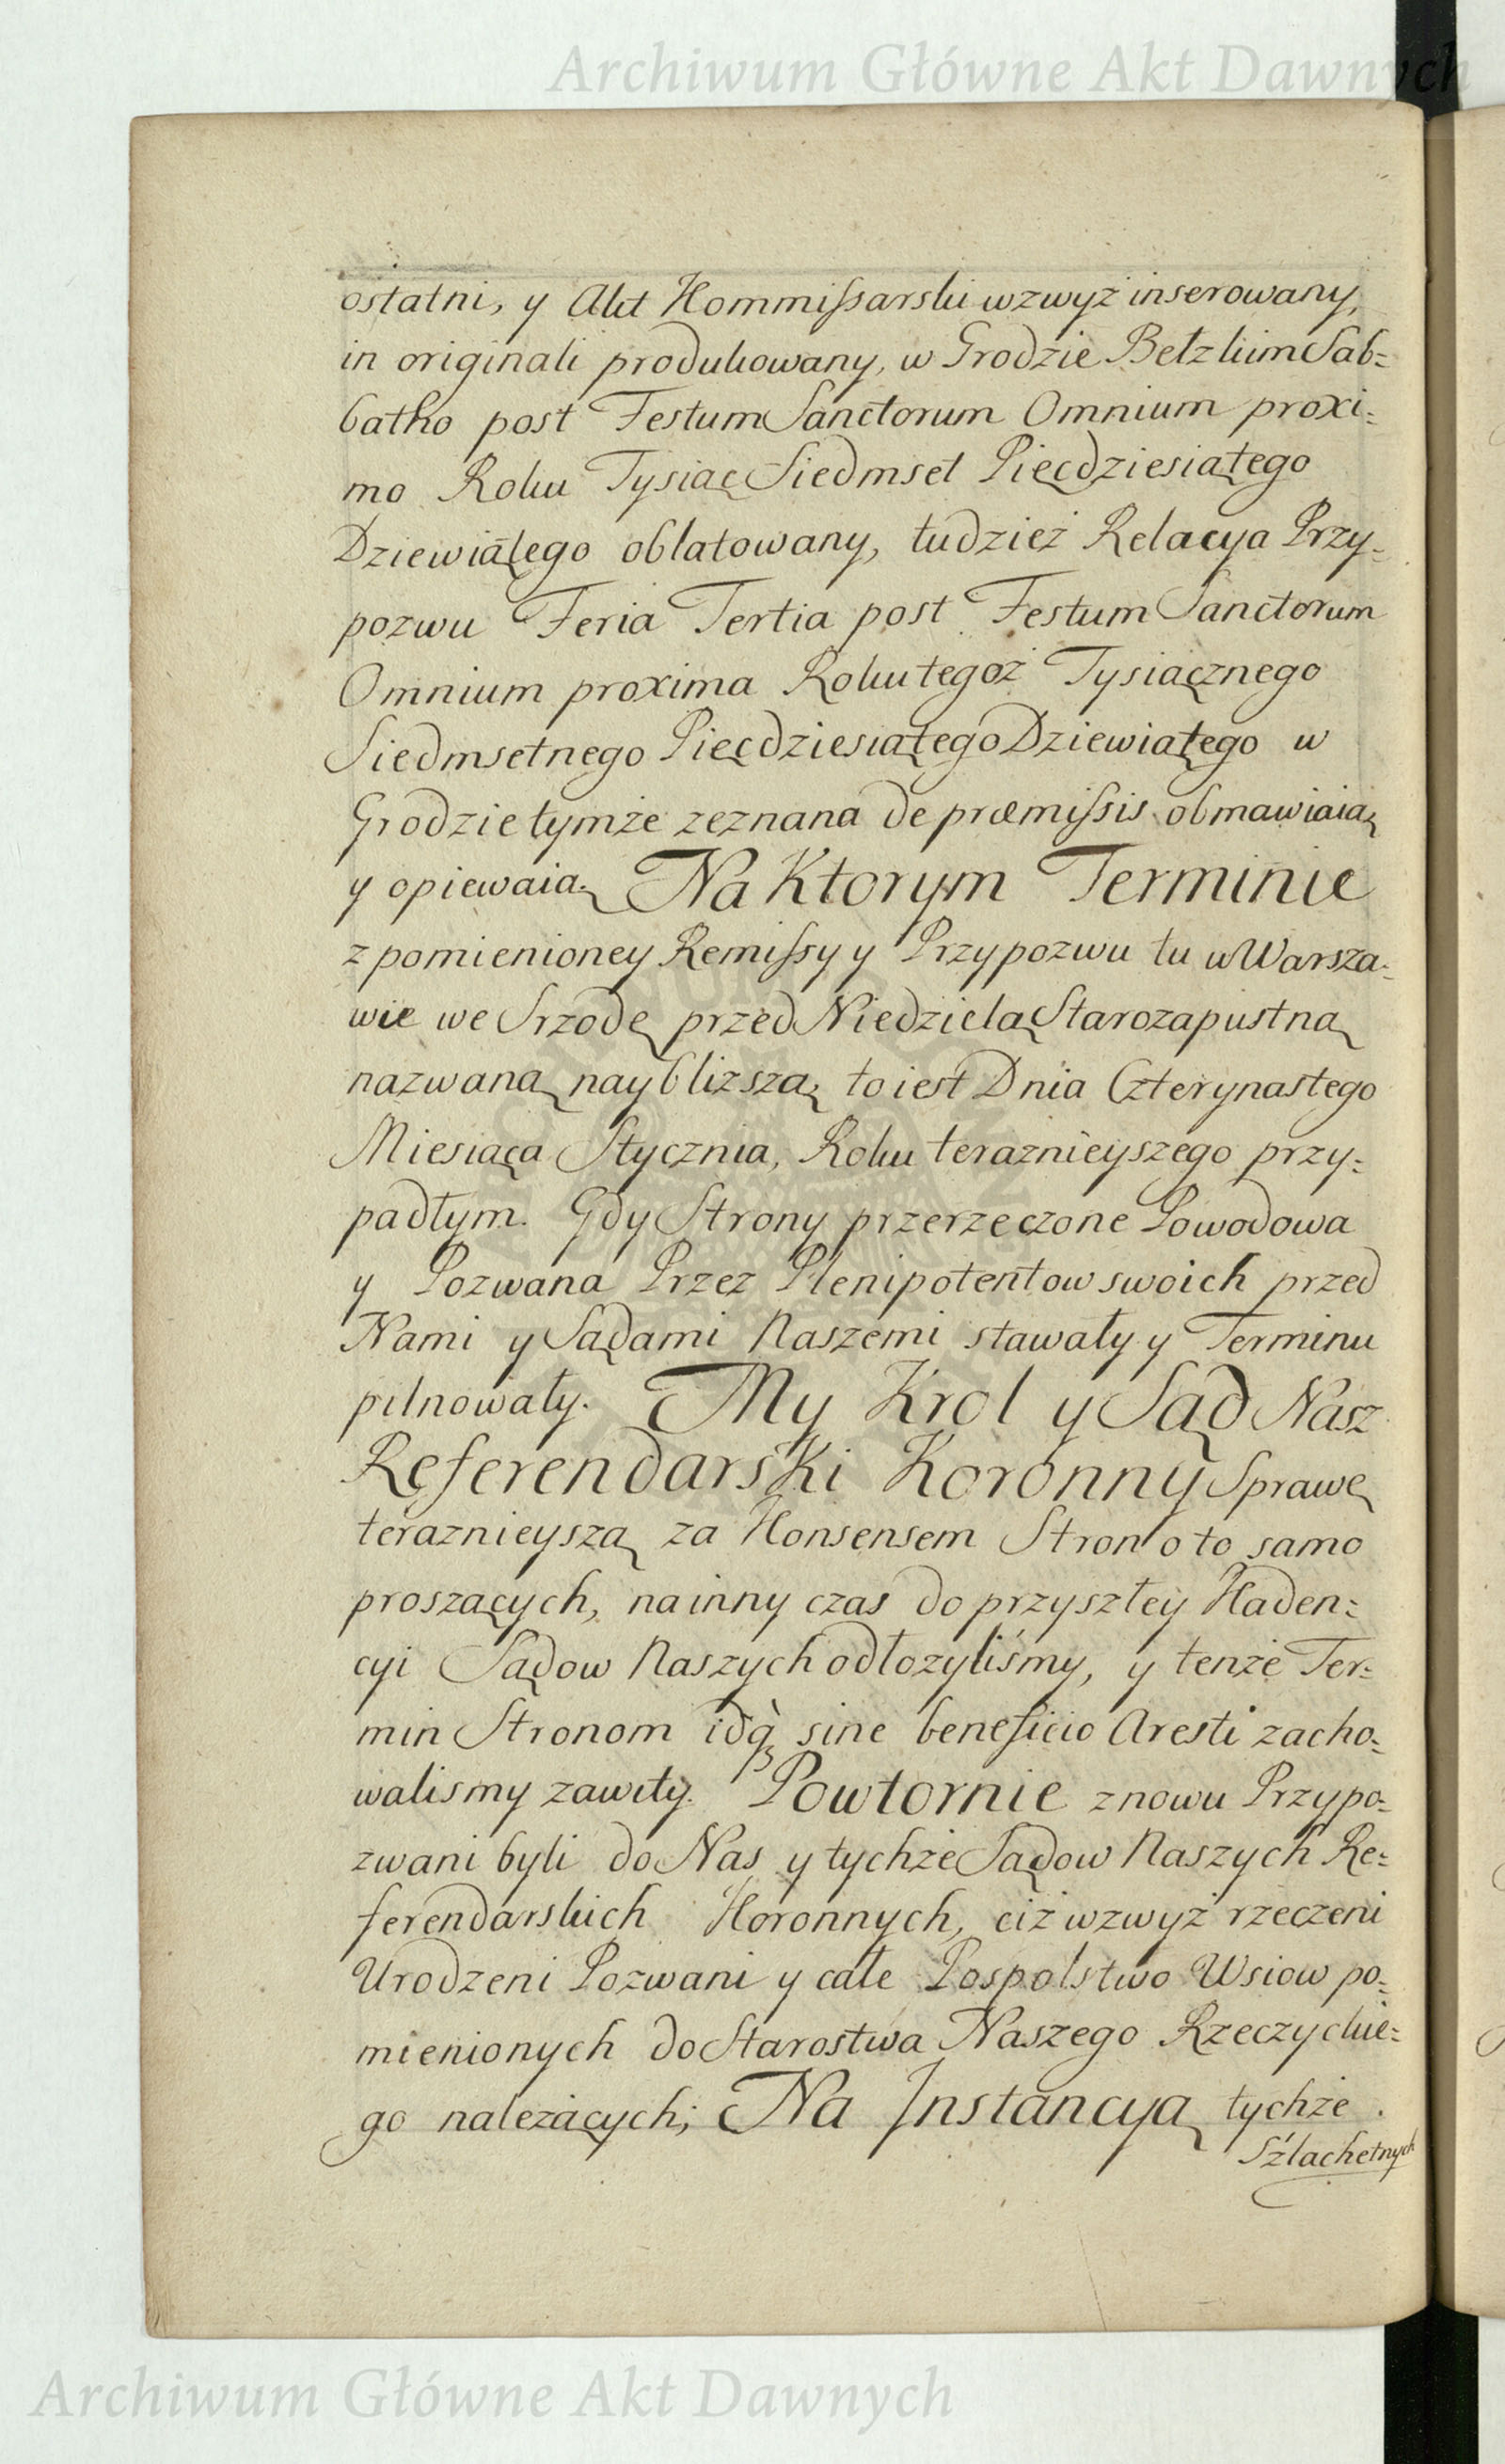 Archiwum Główne Akt Dawnych
ostatni, y Akt Kommissarski wzwyż inserowany,
in originali produkowany, w Grodzie Bełzkim Sab-
batho post Festum Sanctorum Omnium proxi-
mo Roku Tysiąc Siedmset Pięcdziesiątego
Dziewiątego oblatowany, tudzież Relacya Przy-
pozwu Feria Tertia post Festum Sanctorum
Omnium proxima Roku tegoż Tysiącznego
Siedmsetnego Pięcdziesiątego Dziewiątego w
Grodzie tymże zeznana de præmissis obmawiaią
y opiewaią. Na Ktorym Terminie
z pomienioney Remissy y Przypozwu tu w Warsza-
wie we Srzodę przed Niedzielą Starozapustną
nazwaną naybliższą, to iest Dnia Czterynastego
Miesiąca Stycznia, Roku teraznieyszego przy-
padłym. Gdy Strony przerzeczone Powodowa
y Pozwana Przez Plenipotentow swoich przed
Nami y Sądami Naszemi stawały y Terminu
pilnowały. My Krol y Sąd Nasz
Referendarski Koronny Sprawę
teraznieyszą za Konsensem Stron o to samo
proszących, na inny czas do przyszłey Kaden-
cyi Sądow Naszych odłozyliśmy, y tenże Ter-
min Stronom idq̀ꝫ sine beneficio Aresti zacho-
walismy zawity. Powtornie znowu Przypo-
zwani byli do Nas y tychże Sądow Naszych Re-
ferendarskich Koronnych, ciż wzwyż rzeczeni
Urodzeni Pozwani y całe Pospolstwo Wsiow po-
mienionych do Starostwa Naszego Rzeczyckie-
go należących; Na Instancyą tychże
Szlachetnych
Archiwum Główne Akt Dawnych